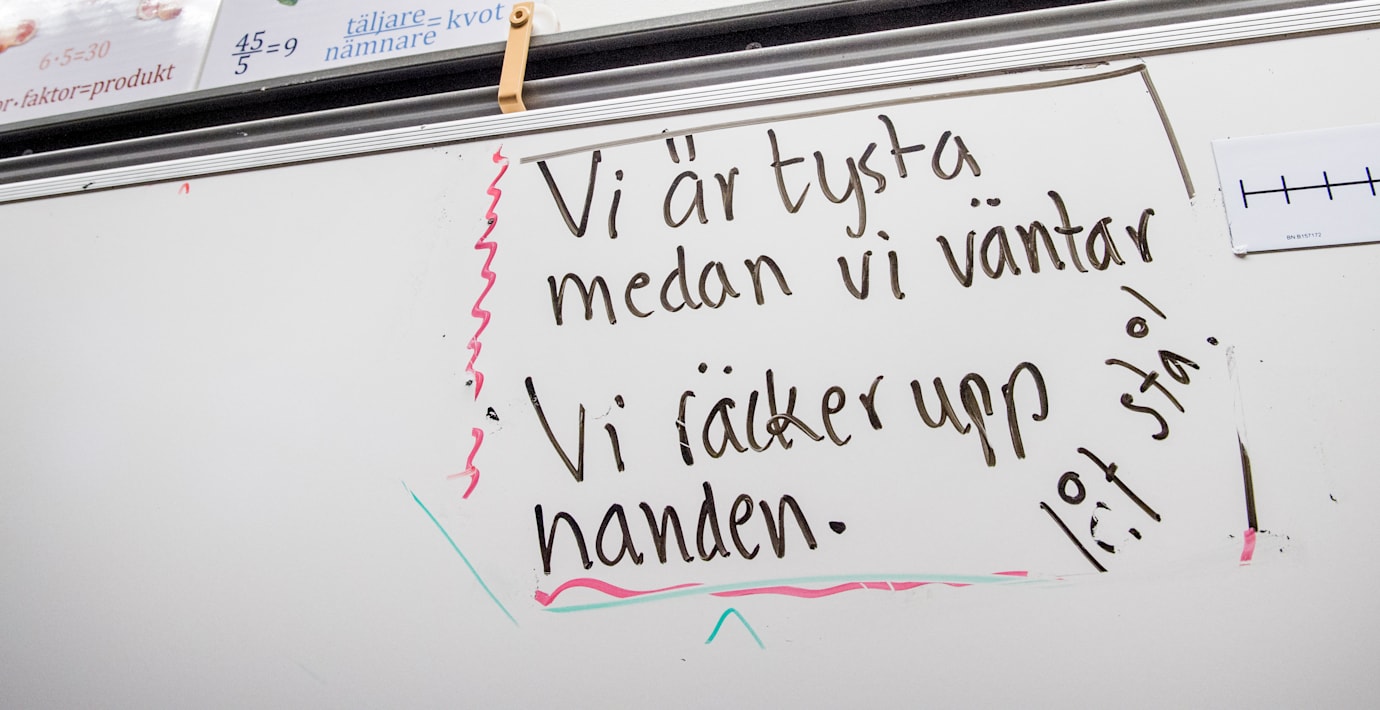 6·5=30
or·faktor=produkt
45/5=9
täljare/nämnare=kvot
Vi är tysta
medan vi väntar
Vi räcker upp
handen.
låt stå!
BN B157172